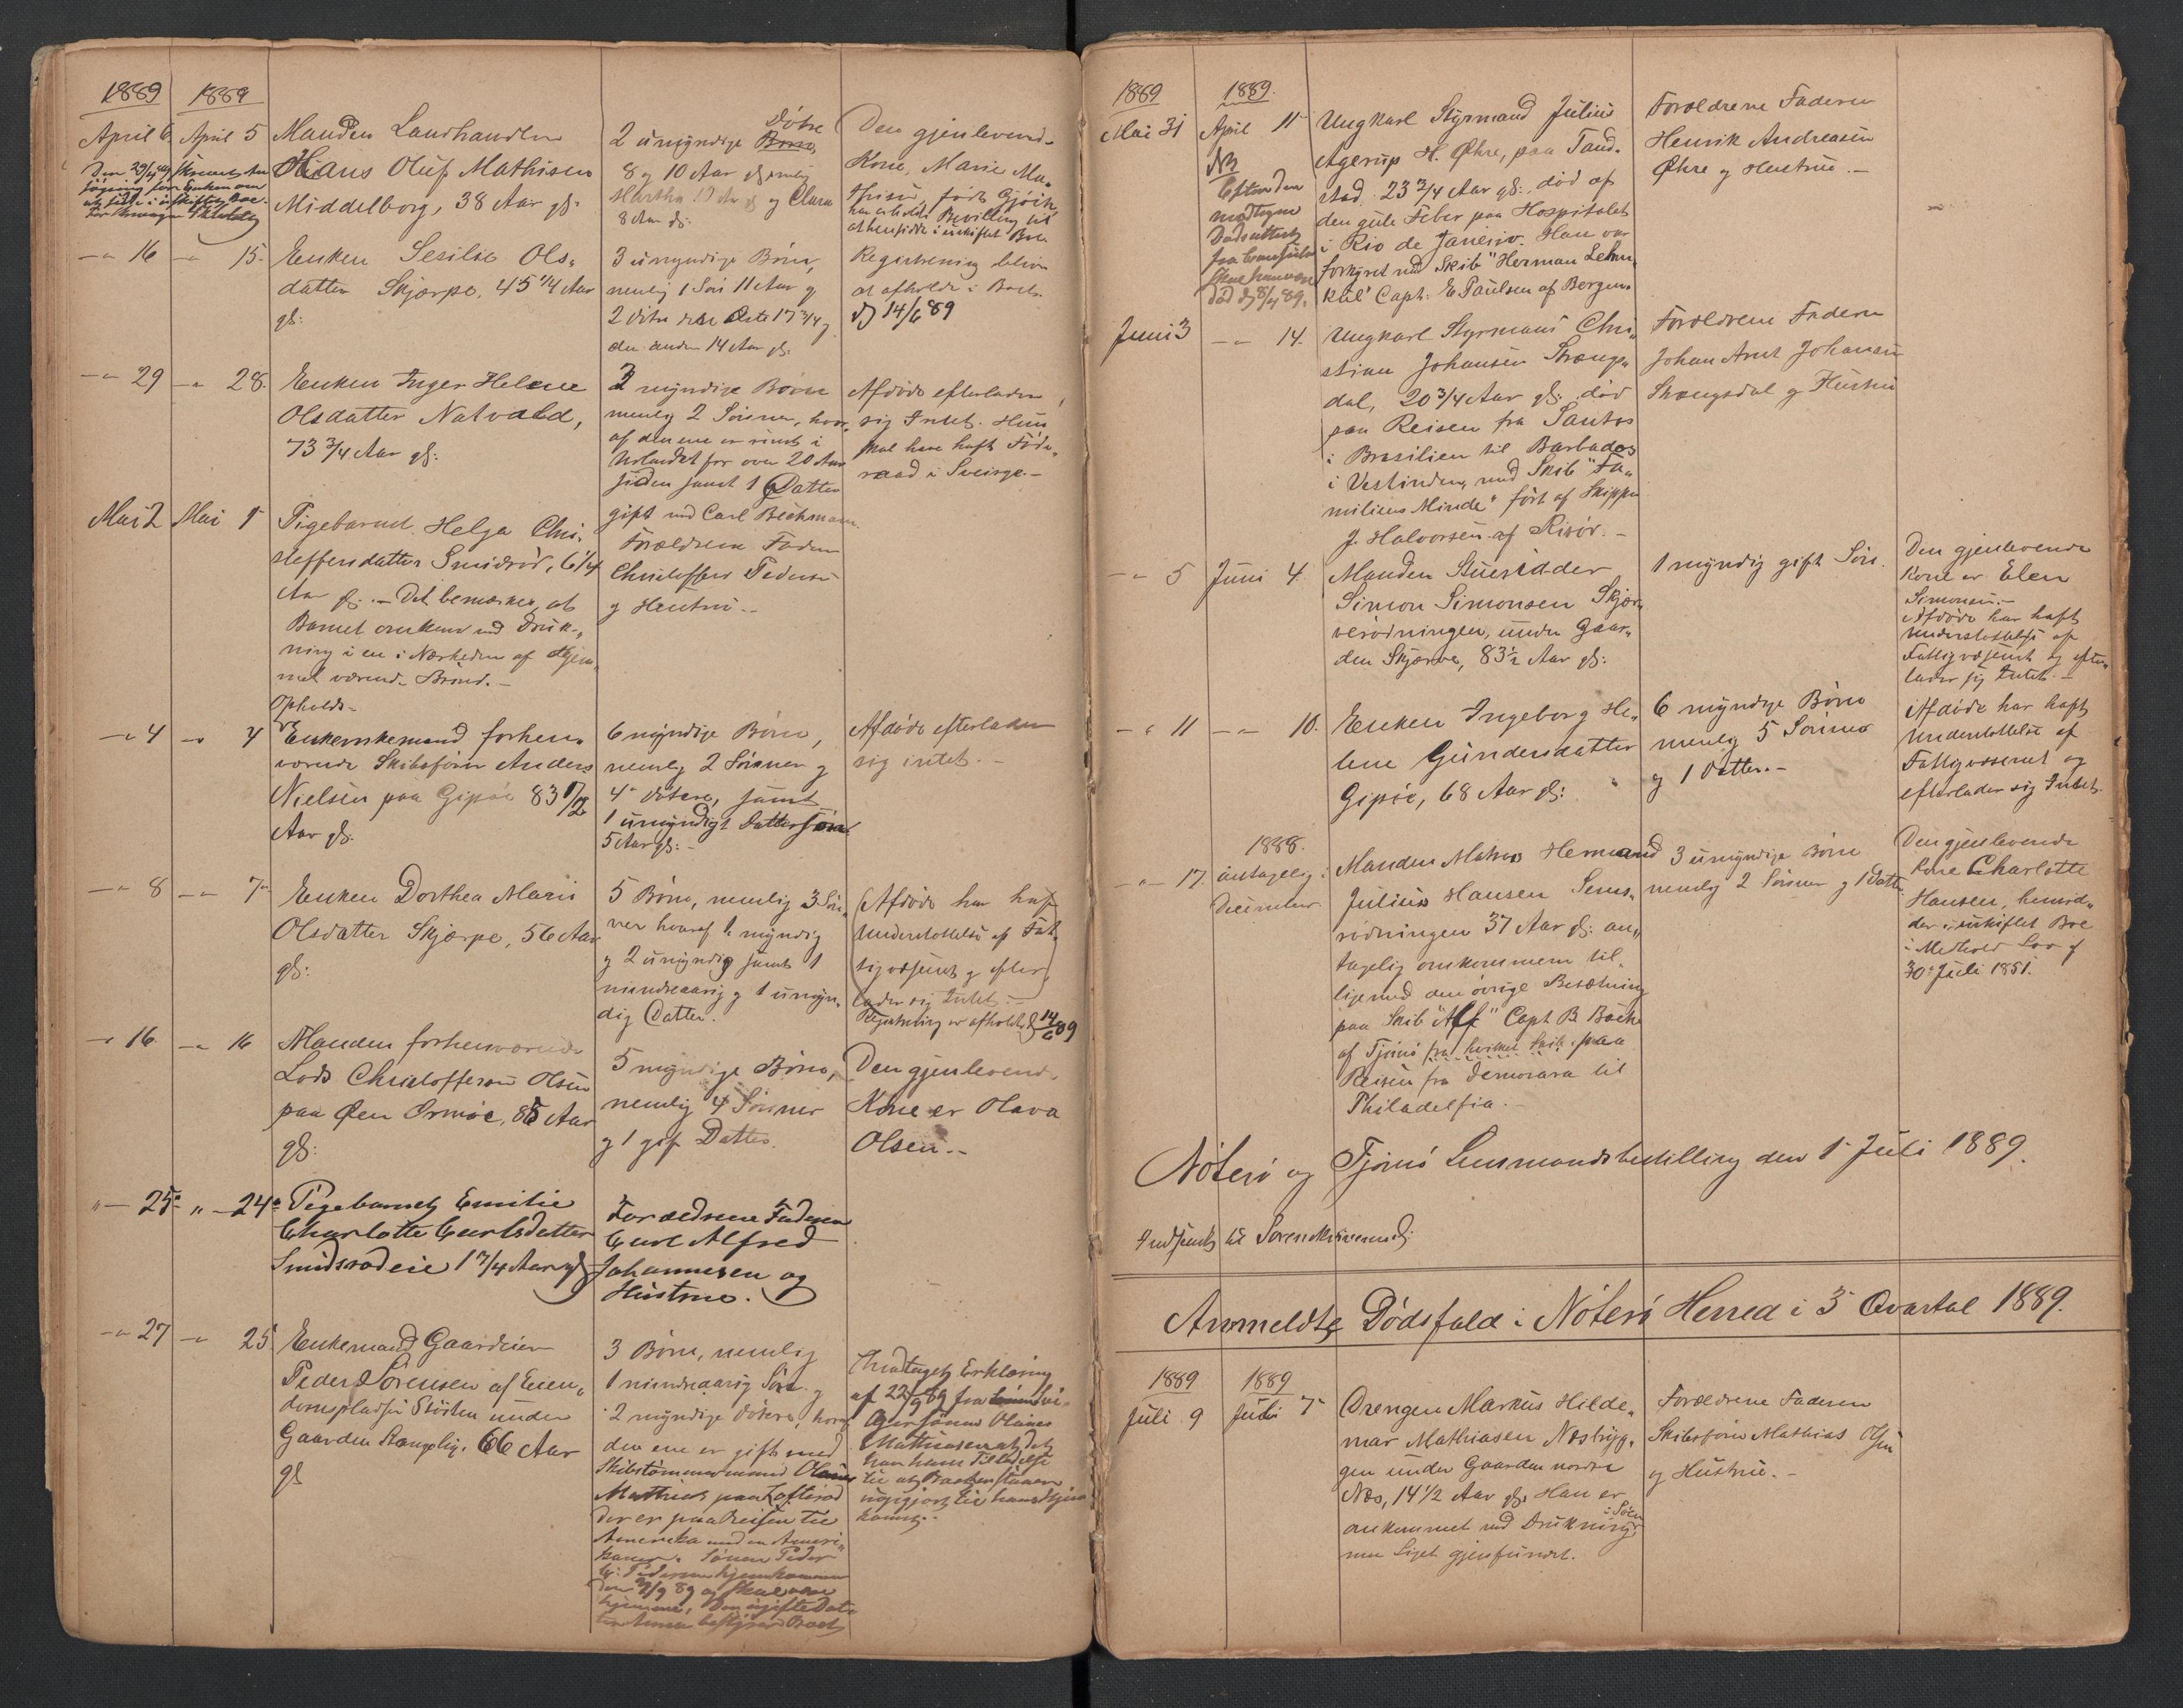 1889 1889
April 6. April 5 Manden Landhandler
Hans Oluf Mathisen
Middelborg, 38 Aar gl:
2 umyndige Døtre
8 og 10 Aar gl: nemlig
Martha 10 Aar gl og Clara
8 Aar gl:
Den gjenlevende
Kone, Marie Ma-
thisen, født Gjøik,
har erholdt Bevilling til
at hensidde i uskiftet Bo.
-"- 16 -"- 15. Enken Sesilie Ols-
datter Skjærpe, 45 1/4 Aar
gl:
3 umyndige Børn,
nemlig 1 Søn 11 Aar og
2 Døtre den Elste 17 3/4 og
den anden 14 Aar gl.
Registrering bliver
at afholde i Boet
d. 14/6 89
-"- 29 -"- 28. Enken Inger Helene
Olsdatter Natvald,
73 3/4 Aar gl:
3 myndige Børn
nemlig 2 Sønner, hvor-
af den ene er rømt i
Udlandet for over 20 Aar
siden samt 1 Datter
gift med Carl Bechmann.
Afdøde efterlader
sig Intet. Hun
skal have haft Føde-
raad i Sverige.-
Mai 2 Mai 1 Pigebarnet Helga Chri-
stoffersdatter Smidsrød, 6 1/4
Aar gl:.- Det bemærkes, at
Barnet omkom ved Druk-
ning i en i Nærheden af Hjem-
met værende Brønd.-
Forældrene Faderen
Christoffer Pedersen
og Hustru.-
Opholds-
-"- 4 -"- 4 Enkemand forhen-
værende Skibsfører Anders
Nielsen paa Gipøe 83 1/2
Aar gl:
6 myndige Børn,
nemlig 2 Sønner og
4 Døtre, samt
1 umyndigt Dattersøn
5 Aar gl:.-
Afdøde efterlader
sig intet.-
-"- 8 -"- 7. Enken Dorthea Marie
Olsdatter Skjærpe, 56 Aar
gl:
5 Børn, nemlig 3 Søn-
ner hvoraf 1 myndig
og 2 umyndig samt 1
mindreaarig og 1 umyn-
dig Datter.
Afdøde har haft
Understøttelse af Fat-
tigvæsenet og efter-
lader sig Intet.-
Registrering er afholdt d 14/6 89
-"- 16 -"- 16 Manden forhenværende
Lods Christoffersen Olsen
paa Øen Ormøe, 85 Aar
gl:
5 myndige Børn,
nemlig 4 Sønner
og 1 gift Datter.
Den gjenlevende
Kone er Olava
Olsen.-
"- 25. "- 24. Pigebarnet Emilie
Charlotte Carlsdatter
Smidsrødeie 1 3/4 Aar gl
Forældrene Faderen
Carl Alfred
Johannesen og
Hustrue.
-"- 27 -"- 25 Enkemand Gaardeier
Peder Sørensen af Eien-
domspladsen Støiten under
Gaarden 66 Aar
gl
3 Børn, nemlig
1 mindreaarig Søn og
2 myndige Døtre, hvoraf
den ene er gift med
Skibstømmermand Olaus
Mathias paa Tofterød
der er paa Reisen til
Amerika med en Ameri-
kaner. Sønnen Peder
Pedersen hjemkommer
hjemme, Den ugifte Dat-
ter bestyrer Boet
Modtaget Erklæring
af 22/9 89 fra
Olaus
Mathiasen at det
har hans Tilladelse
til at Boet henstaaer
uopgjort til hans Hjem-
komst.-
1889 1889.
Mai 31 April 11 Ungkarl Styrmand Julius
Agerup H. Øhre, paa Tand-
stad 23 3/4 Aar gl:, død af
den gule Feber paa Hospitalet
i Rio de Janeiro. Han var
forhyret med Skib "Herman Lehm-
kul" Capt: E Paulsen af Bergen.
NB
Efter den
modtagne
Dødsattest
fra Consulen
skal han være
død d 8/4 89.
Forældrene Faderen
Henrik Andreasen
Øhre og Hustrue.-
Juni 3 -"- 14. Ungkarl Styrmand Chri-
stian Johansen Strængs-
dal, 20 3/4 Aar gl: død
paa Reisen fra Santos
i Brasilien til Barbados
i Vestindien, med Skib "Fa-
miliens Minde" ført af Skipper
J. Halvorsen af Risør.-
Forældrene Faderen
Johan Arnt Johansen
Strængsdal og Hustru
-"- 5 Juni 4. Manden Huusidder
Simon Simonsen Skjær-
verødningen, under Gaar-
den Skjærve, 83 1/2 Aar gl:
1 myndig gift Søn.
Den gjenlevende
Kone er Elen
Simonsen.-
Afdøde har haft
Understøttelse af
Fattigvæsenet og efter-
lader sig Intet.-
-"- 11 -"- 10. Enken Ingeborg He-
lene Gundersdatter
Gipøe, 68 Aar gl:
6 myndige Børn
nemlig 5 Sønner
og 1 Datter.-
Afdøde har haft
Understøttelse af
Fattigvæsenet og
efterlader sig Intet.
1888.
-"- 17. antagelig i
December
Manden Matros Hermand
Julius Hansen Sems-
rødningen 37 Aar gl: an-
tagelig omkommen til-
ligemed den øvrige Besætning
paa Skib "Alf" Capt B. Bache
af Tjømø fra hvilket Skib paa
Reisen fra Demerara til
Philadelfia.-
3 umyndige Børn
nemlig 2 Sønner og 1 Datter
Den gjenlevende
Kone Charlotte
Hansen, hensid-
der i uskiftet Boe
i Medhold Lov af
30 Juli 1851.
Nøterø og Tjømø Lensmandsbestilling den 1 Juli 1889.
Indsendt til Sorenskriveren d:
Anmeldte Dødsfald i Nøterø Herred i 3 Qvartal 1889.
1889 1889
Juli 9 Juli 7 Drengen Markus Hilde-
mar Mathiasen Næsbryg-
gen under Gaarden nordre
Næs, 14 1/2 Aar gl. Han er
omkommet ved Drukning i Søen
men Liget gjenfundet.
Forældrene Faderen
Skibsfører Mathias Olsen
og Hustrue.-